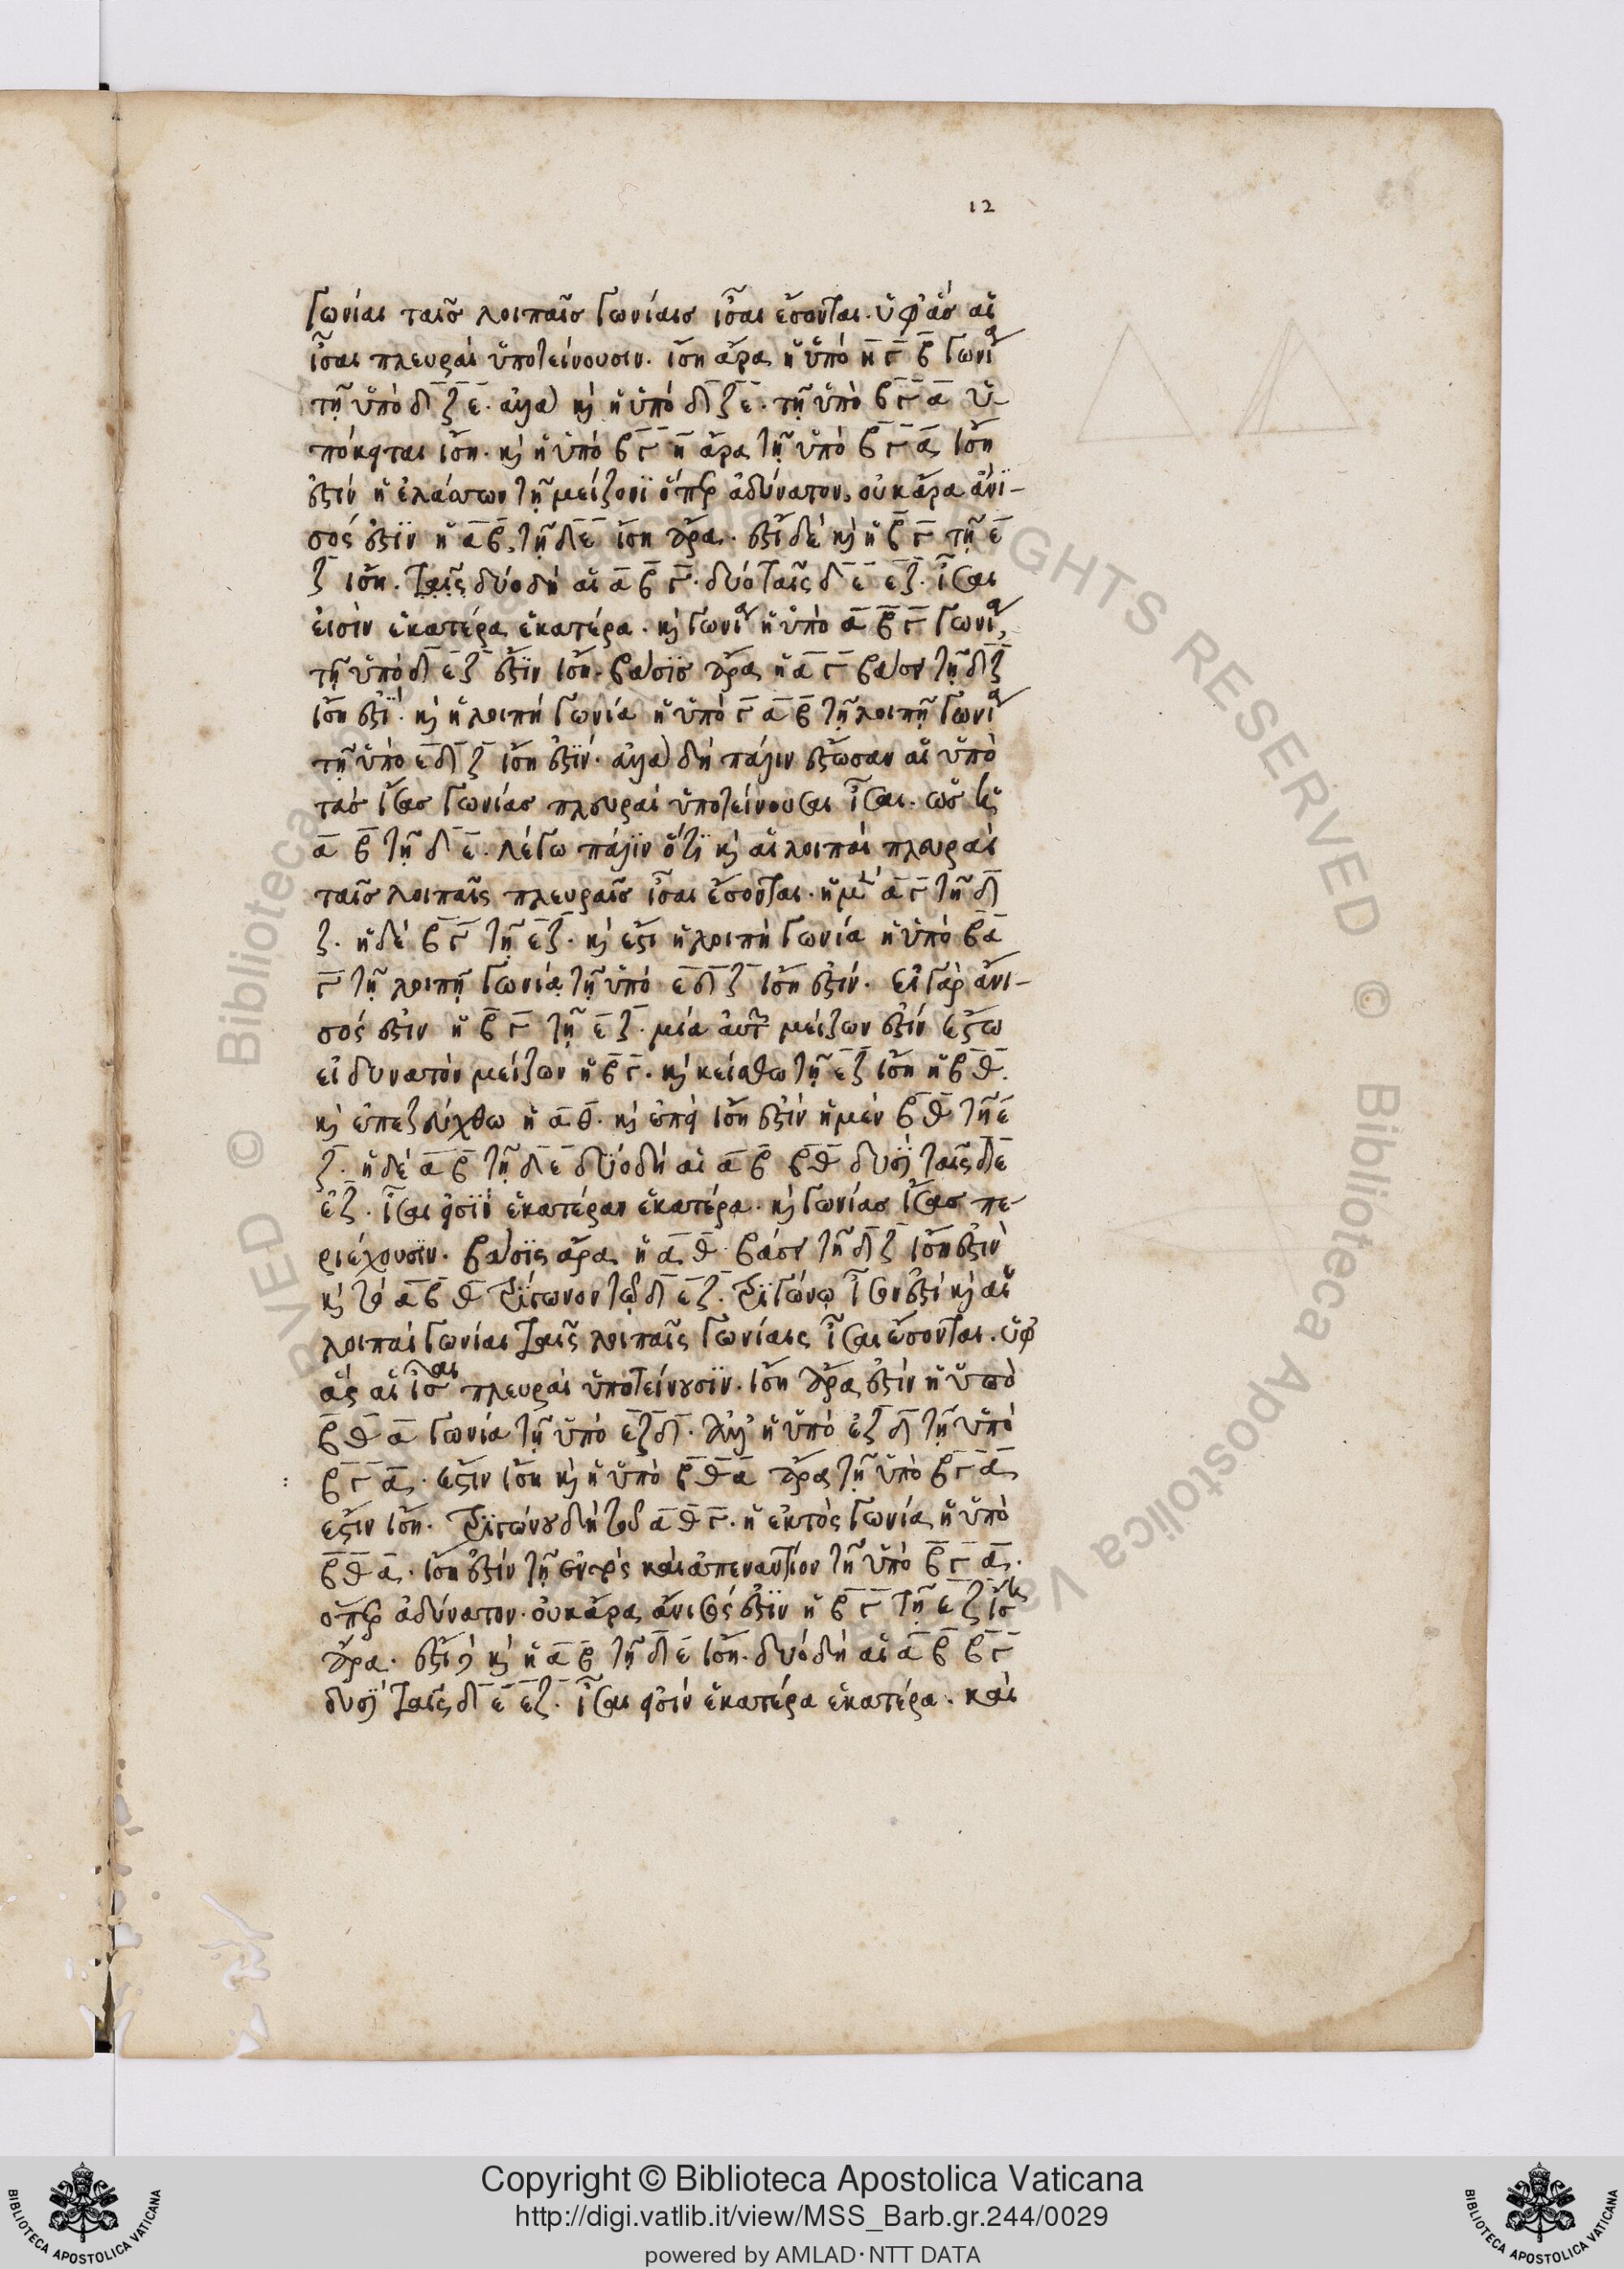 12
γωνίαι ταῖσ λοιπαῖσ γωνίαισ ἴσαι ἔσονται. ὑφ' ἃσ αἱ
ἴσαι πλευραὶ ὑποτείνουσιν. ἴση ἄρα ἡ ὑπὸ η̅ γ̅ β̅ γωνία
τῆ ὑπὸ δ̅ ζ̅ ε̅. ἀλλὰ κὶ ἡ ὑπὸ δ̅ ζ̅ ε̅. τῆ ὑπὸ β̅ γ̅ α̅ ὑ-
πόκειται ἴση. κὶ ἡ ὑπὸ β̅ γ̅ η̅ ἄρα τῆ ὑπὸ β̅ γ̅ α̅ ἴση
ἐστίν ἡ ἐλάσσων τῆ μείζονϊ ὅπερ ἀδύνατον. οὐκ ἄρα ἄνϊ-
σός ἐστϊν ἡ α̅ β̅, τῆ δ̅ ε̅ ἴση ἄρα. ἐστὶ δὲ κὶ ἡ β̅ γ̅ τῆ ε̅
ζ̅ ἴση. ταῖς δύο δὴ αἱ α̅ β̅ γ̅. δυὸ ταῖς δ̅ ε̅ ε̅ ζ̅. ἴσαι
εἰσὶν ἑκατέρα ἑκατέρα. κὶ γωνία ἡ ὑπὸ α̅ β̅ γ̅ γωνία,
τῆ ὑπὸ δ̅ ε̅ ζ̅ ἐστϊν ἴση. βάσϊσ ἄρα ἡ α̅ γ̅ βάσει τῆ δ̅ ζ̅
ἴση ἐστϊ. κὶ ἡ λοιπὴ γωνία ἡ ὑπὸ γ̅ α̅ β̅ τῆ λοιπῆ γωνία
τῆ ὑπὸ ε̅ δ̅ ζ̅ ἴση ἐστϊν. ἀλλὰ δὴ πάλιν ἔστωσαν αἱ ὑπὸ
τὰσ ἴσασ γωνίασ πλευραὶ ὑποτείνουσαι ἴσαι. ὡσ ἡ
α̅ β̅ τῆ δ̅ ε̅. λέγω πάλϊν ὅτϊ κὶ αἱ λοιπαὶ πλευραὶ
ταῖσ λοιπαῖς πλευραῖσ ἴσαι ἔσονται. ἡ μὲν α̅ γ̅ τῆ δ̅
ζ̅. ἡ δὲ β̅ γ̅ τῆ ε̅ ζ̅. κὶ ἔτι ἡ λοιπὴ γωνία ἡ ὑπὸ β̅ α̅
γ̅ τῆ λοιπῆ γωνία τῆ ὑπὸ ε̅ δ̅ ζ̅ ἴση ἐστίν. εἰ γὰρ ἄνι-
σός ἐστιν ἡ β̅ γ̅ τῆ ε̅ ζ̅. μία αὐτῶν μείζων ἐστίν ἔστω
εἰ δυνατὸν μείζων ἡ β̅ γ̅. κὶ κείσθω τῆ ε̅ ζ̅ ἴση ἡ β̅ θ̅.
κὶ ἐπεζεύχθω ἡ α̅ θ̅. κὶ ἐπεὶ ἴση ἐστίν ἡ μὲν β̅ θ̅ τῆ ε̅
ζ̅. ἡ δὲ α̅ β̅ τῆ δ̅ ε̅ δϋὸ δὴ αἱ α̅ β̅ β̅ θ̅ δυσϊ ταῖς δ̅ ε̅
ε̅ ζ̅. ἴσαι εἰσϊν ἑκατέραν ἑκατέρα. κὶ γωνίασ ἴσασ πε-
ριέχουσϊν. βάσϊς ἄρα ἡ α̅ θ̅ βάσει τῆ δ̅ ζ̅ ἴση ἐστὶν
κὶ τὸ α̅ β̅ θ̅ τρίγωνον τῷ δ̅ ε̅ ζ̅. τρϊγώνῳ ἴσον ἐστὶ κὶ αἱ
λοιπαὶ γωνίαι ταῖς λοιπαῖς γωνίαις ἴσαι ἔσονται. ὑφ'
ἃς αἱ ἴσαι πλευραὶ ὑποτείνουσϊν. ἴση ἄρα ἐστὶν ἡ ὑπὸ
β̅ θ̅ α̅ γωνία τῆ ὑπὸ ε̅ ζ̅ δ̅. ἀλλ' ἡ ὑπὸ ε̅ ζ̅ δ̅ τῆ ὑπὸ
β̅ γ̅ α̅. ἐστιν ἴση κὶ ἡ ὑπὸ β̅ θ̅ α̅ ἄρα τῆ ὑπὸ β̅ γ̅ α̅
ἐστιν ἴση. τρϊγώνου δὴ τοῦ α̅ θ̅ γ̅. ἡ ἐκτὸς γωνία ἡ ὑπὸ
β̅ θ̅ α̅. ἴση ἐστὶν τῆ ἐντὸς καὶ ἀπεναντίον τῆ ὑπὸ β̅ γ̅ α̅.
ὅπερ ἀδύνατον. οὐκ ἄρα ἄνισός ἐστϊν ἡ β̅ γ̅ τῆ ε̅ ζ̅ ἴση
ἄρα. ἐστὶ δὲ κὶ ἡ α̅ β̅ τῆ δ̅ ε̅ ἴση. δυὸ δὴ αἱ α̅ β̅ β̅ γ̅
δυσϊ ταῖς δ̅ ε̅ ε̅ ζ̅. ἴσαι εἰσὶν ἑκατέρα ἑκατέρα. καὶ
Copyright © Biblioteca Apostolica Vaticana
http://digi.vatlib.it/view/MSS_Barb.gr.244/0029
powered by AMLAD·NTT DATA
BIBLIOTECA APOSTOLICA VATICANA
BIBLIOTECA APOSTOLICA VATICANA